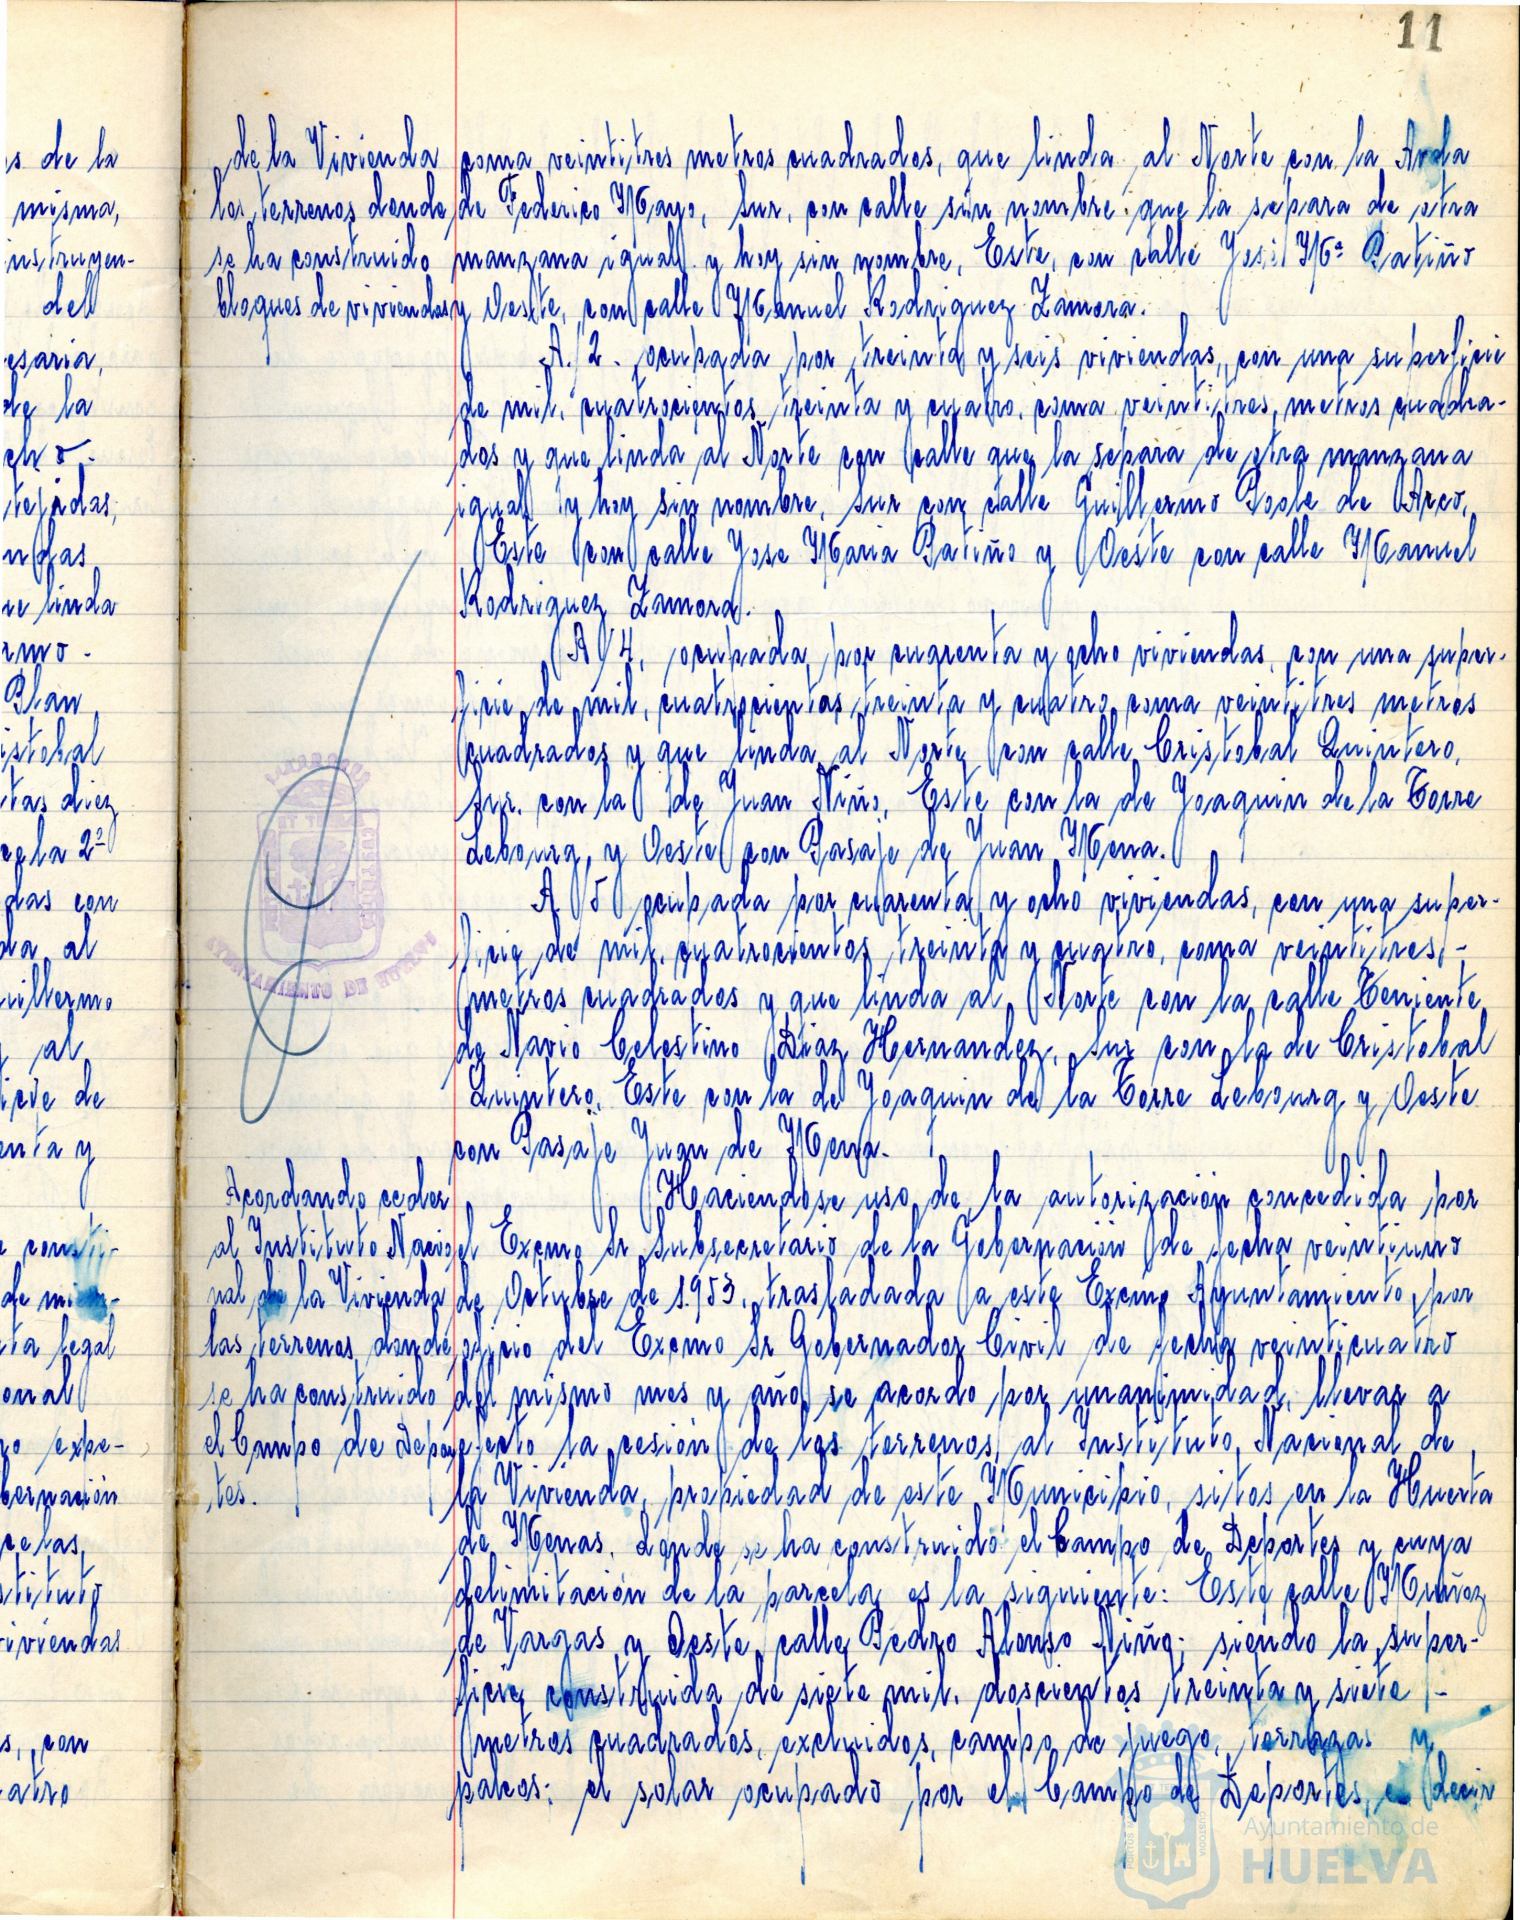 11
s de la
misma,
nstruyen-
del
esaria,
de la
cho -
tejidas,
ndas
ue linda
rmo -
Plan
istobal
tas diez
cela 2ª
das con
da al
uillermo
y al
icie de
enta y
consti-
de
ta legal
onal
ro expe-
bernación
celas,
stituto
viviendas
s, con
atro
de la Vivienda
los terrenos donde
se ha construido
bloques de viviendas
coma veintitres metros cuadrados, que linda al Norte con la Avda
de Federico Mayo, Sur, con calle sin nombre que la separa de otra
manzana igual y hoy sin nombre, Este, con calle José Mª Patiño
y Oeste, con calle Manuel Rodriguez Zamora.
A/2. ocupada por treinta y seis viviendas, con una superficie
de mil, cuatrocientos treinta y cuatro, coma veintitres, metros cuadra-
dos y que linda al Norte con calle que la separa de otra manzana
igual y hoy sin nombre, Sur con calle Guillermo Poole de Arco,
Este con calle Jose Maria Patiño y Oeste con calle Manuel
Rodriguez Zamora.
A/4, ocupada por cuarenta y ocho viviendas, con una super-
ficie de mil, cuatrocientas treinta y cuatro coma veintitres metros
cuadrados y que linda al Norte con calle Cristobal Quintero,
Sur. con la de Juan Niño, Este con la de Joaquin de la Torre
Lebourg, y Oeste con Pasaje de Juan Mena.
A/5 ocupada por cuarenta y ocho viviendas, con una super-
ficie de mil, cuatrocientos treinta y cuatro, coma veintitres, -
metros cuadrados y que linda al Norte con la calle Teniente
de Navio Celestino Diaz Hernandez, Sur con la de Cristobal
Quintero, Este con la de Joaquin de la Torre Lebourg y Oeste
con Pasaje Juan de Mena.
Acordando ceder
al Instituto Nacio
nal de la Vivienda
las terrenos donde
se ha construido
el Campo de Depor
tes.
Haciendose uso de la autorización concedida por
el Excmo Sr Subsecretario de la Gobernación de fecha veintiuno
de Octubre de 1.953, trasladada a este Excmo Ayuntamiento, por
oficio del Excmo Sr Gobernador Civil de fecha veinticuatro
del mismo mes y año se acordo por unanimidad, llevar a
efecto la cesión de los terrenos, al Instituto Nacional de
la Vivienda, propiedad de este Municipio, sitos en la Huerta
de Menas, donde se ha construido el Campo de Deportes y cuya
delimitación de la parcela es la siguiente: Este calle Muñoz
de Vargas y Oeste calle Pedro Alonso Niño; siendo la super-
ficie construida de siete mil, doscientos treinta y siete -
metros cuadrados, excluidos, campo de juego, terrazas y
palcos; el solar ocupado por el Campo de Deportes, es decir
Ayuntamiento de
HUELVA